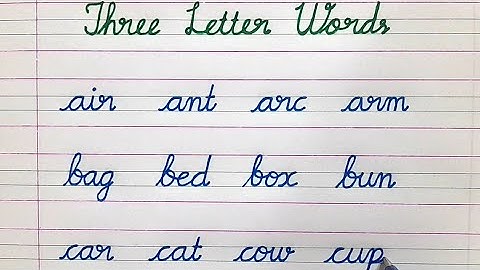 Three Letter Words
air ant arc arm
bag bed box bun
car cat cow cup